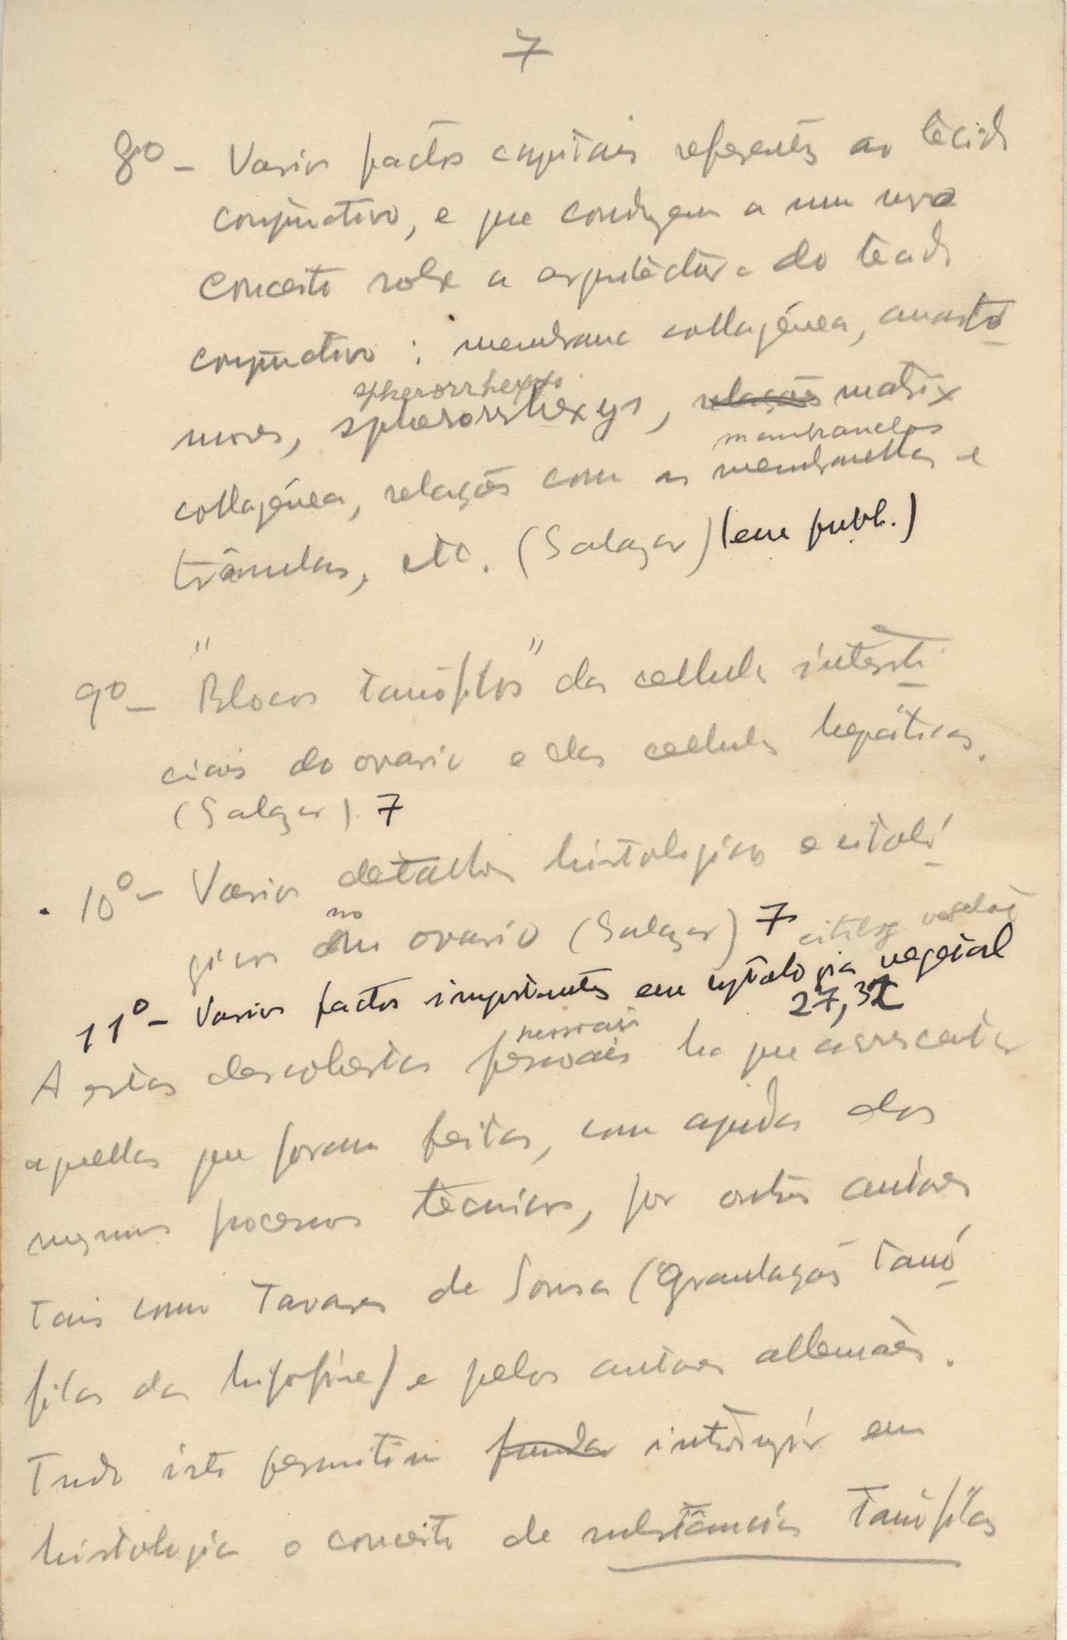 7
8º - Varios factos capitais referentes ao tecido
conjunctivo, e que conduzem a um novo
conceito sobre a arquitectura do tecido
conjunctivo : membrana collagénea, anasto
spherorrhexis
moses, spherorrhexys, relações matrix
membranelas
collagénea, relações com as membranellas e
trâmulas, etc. (Salazar) (em publ.)
9º - "Blocos tanófilos" das cellulas intersti
ciais do ovario e das cellulas hepáticas.
(Salazar). 7
10º - Varios detalhes histologicos e citoló
no
gicos do ovario (Salazar) 7 citolog vegetal
11º - Varios factos importantes em cytologia vegetal
27, 32
pessoais
A estas descobertas pessoais ha que acrescentar
aquellas que foram feitas, com ajuda dos
mesmos processos tecnicos, por outros autores
tais como Tavares de Sousa (Granulações tanó
filas da hipófise) e pelos autores allemães.
Tudo isto permitiu fundar introduzir em
histologia o conceito de substâncias tanófilas